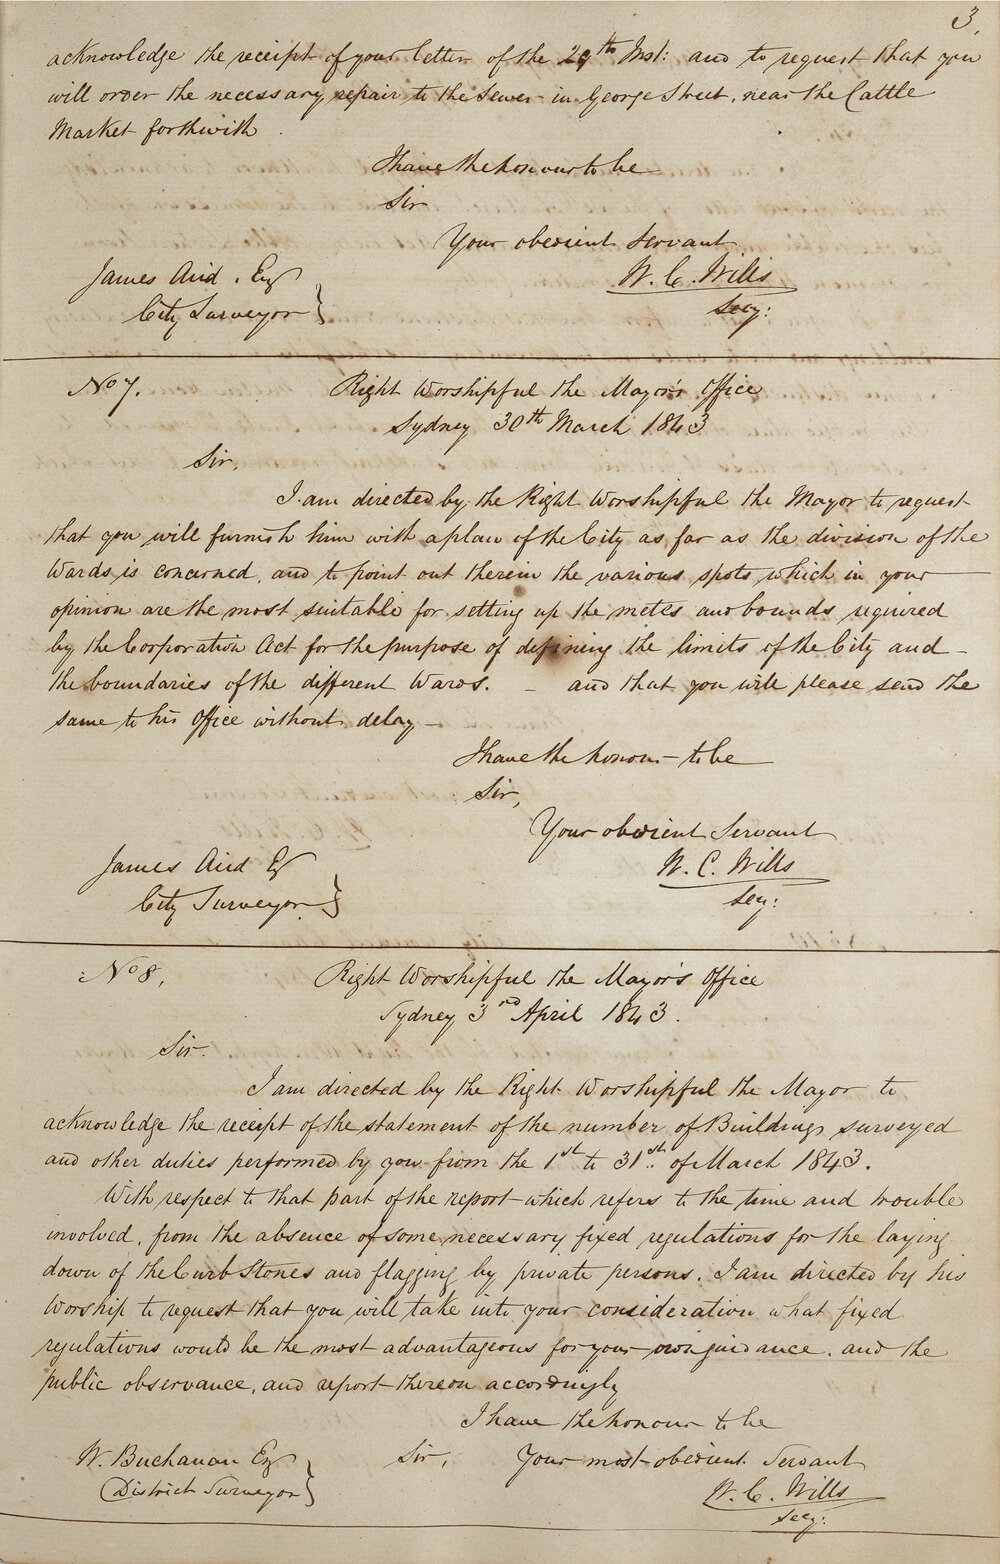 3.
acknowledge the receipt of your letter of the 29th Inst: and to request that you
will order the necessary repair to the Sewer in George Street, near the Cattle
Market forthwith.
I have the honour to be
Sir
Your obedient Servant
James Aird. Esq
W. C. Wills
City Surveyor }
Secy:
No 7.
Right Worshipful the Mayor's Office
Sydney 30th March 1843
Sir,
I am directed by the Right Worshipful the Mayor to request
that you will furnish him with a plan of the City as far as the division of the
Wards is concerned, and to point out therein the various spots which in your
opinion are the most suitable for setting up the metes and bounds required
by the Corporation Act for the purpose of defining the limits of the City and
the boundaries of the different Wards. - and that you will please send the
same to his Office without delay -
I have the honour to be
Sir,
Your obedient Servant
James Aird Esq
W. C. Wills
City Surveyor }
Secy:
No 8.
Right Worshipful the Mayor's Office
Sydney 3rd April 1843.
Sir.
I am directed by the Right Worshipful the Mayor to
acknowledge the receipt of the statement of the number of Buildings surveyed
and other duties performed by you from the 1st to 31st of March 1843.
With respect to that part of the report which refers to the time and trouble
involved, from the absence of some necessary fixed regulations for the laying
down of the Curb Stones and flagging by private persons. I am directed by his
Worship to request that you will take into your consideration what fixed
regulations would be the most advantageous for your own guidance. and the
public observance, and report thereon accordingly
I have the honour to be
W. Buchanan Esq
Sir, Your most obedient Servant
District Surveyor }
W. C. Wills
Secy: